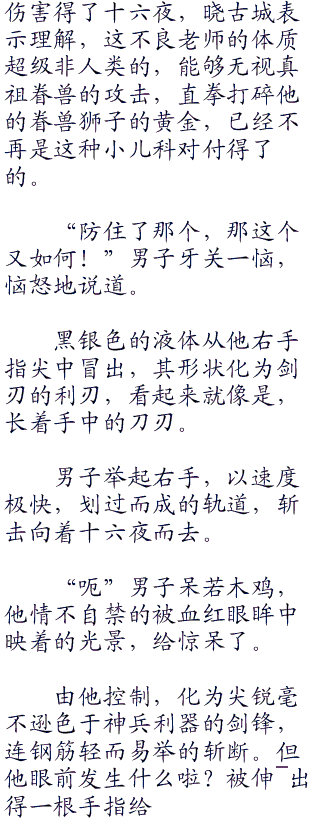 伤害得了十六夜，晓古城表
示理解，这不良老师的体质
超级非人类的，能够无视真
祖眷兽的攻击，直拳打碎他
的眷兽狮子的黄金，已经不
再是这种小儿科对付得了
的。
“防住了那个，那这个
又如何！”男子牙关一恼，
恼怒地说道。
黑银色的液体从他右手
指尖中冒出，其形状化为剑
刃的利刃，看起来就像是，
长着手中的刀刃。
男子举起右手，以速度
极快，划过而成的轨道，斩
击向着十六夜而去。
“呃”男子呆若木鸡，
他情不自禁的被血红眼眸中
映着的光景，给惊呆了。
由他控制，化为尖锐毫
不逊色于神兵利器的剑锋，
连钢筋轻而易举的斩断。但
他眼前发生什么啦？被伸 出
得一根手指给